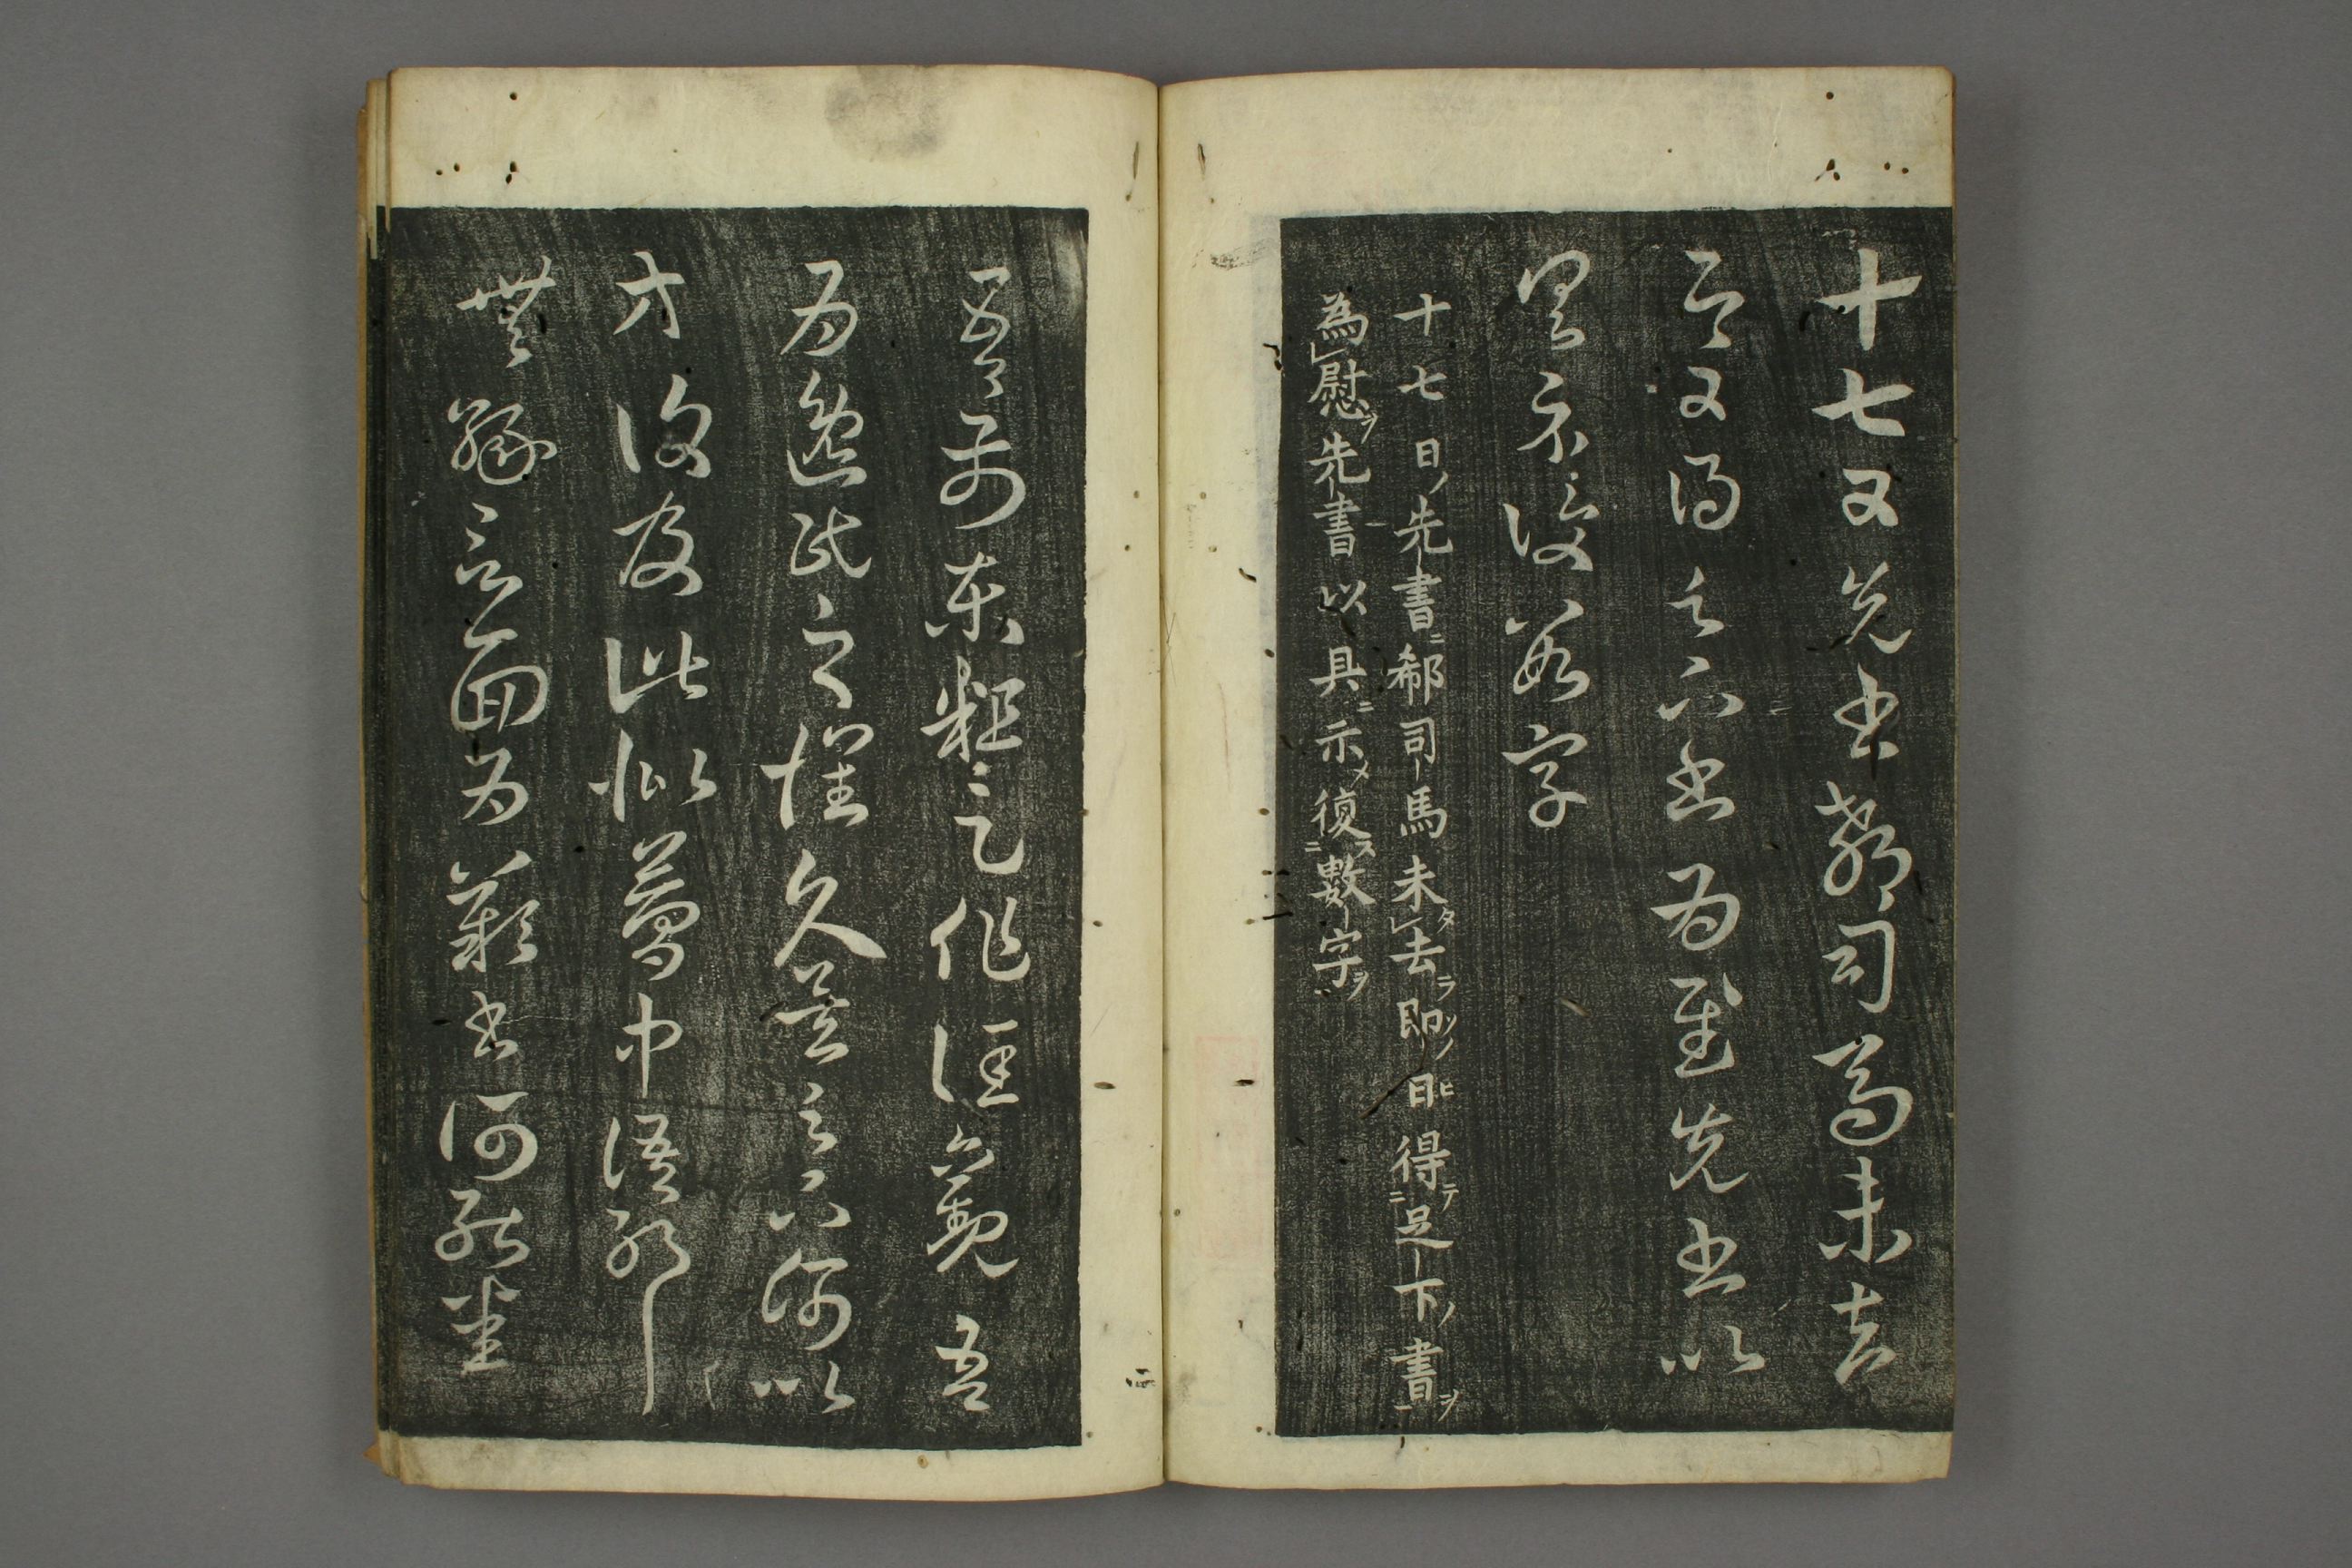 十七日先書郗司馬未去
即日得足下書為慰先書以
具示復數字
十七日ノ先書ニ郗司馬未タ去ラ即ノ日ヒ得テ足下ノ書ヲ
為慰ラ先書以具ニ示メ復ス數字ヲ
吾前東粗足作佳觀吾
為逸民之懷久矣足下何以
方復及此似夢中語耶
無緣言面為歎書何能悉